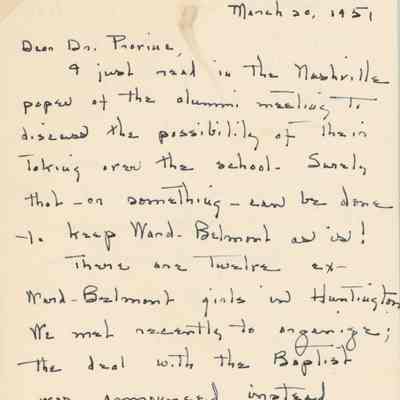 March 20, 1951
Dear Dr. Provine,
I just read in the Nashville
paper of the alumni meeting to
discuss the possibility of their
taking over the school. Surely
that - or something - can be done
to keep Ward-Belmont as is!
There are twelve ex-
Ward-Belmont girls in Huntington
We met recently to organize;
the deal with the Baptist
was announced instead